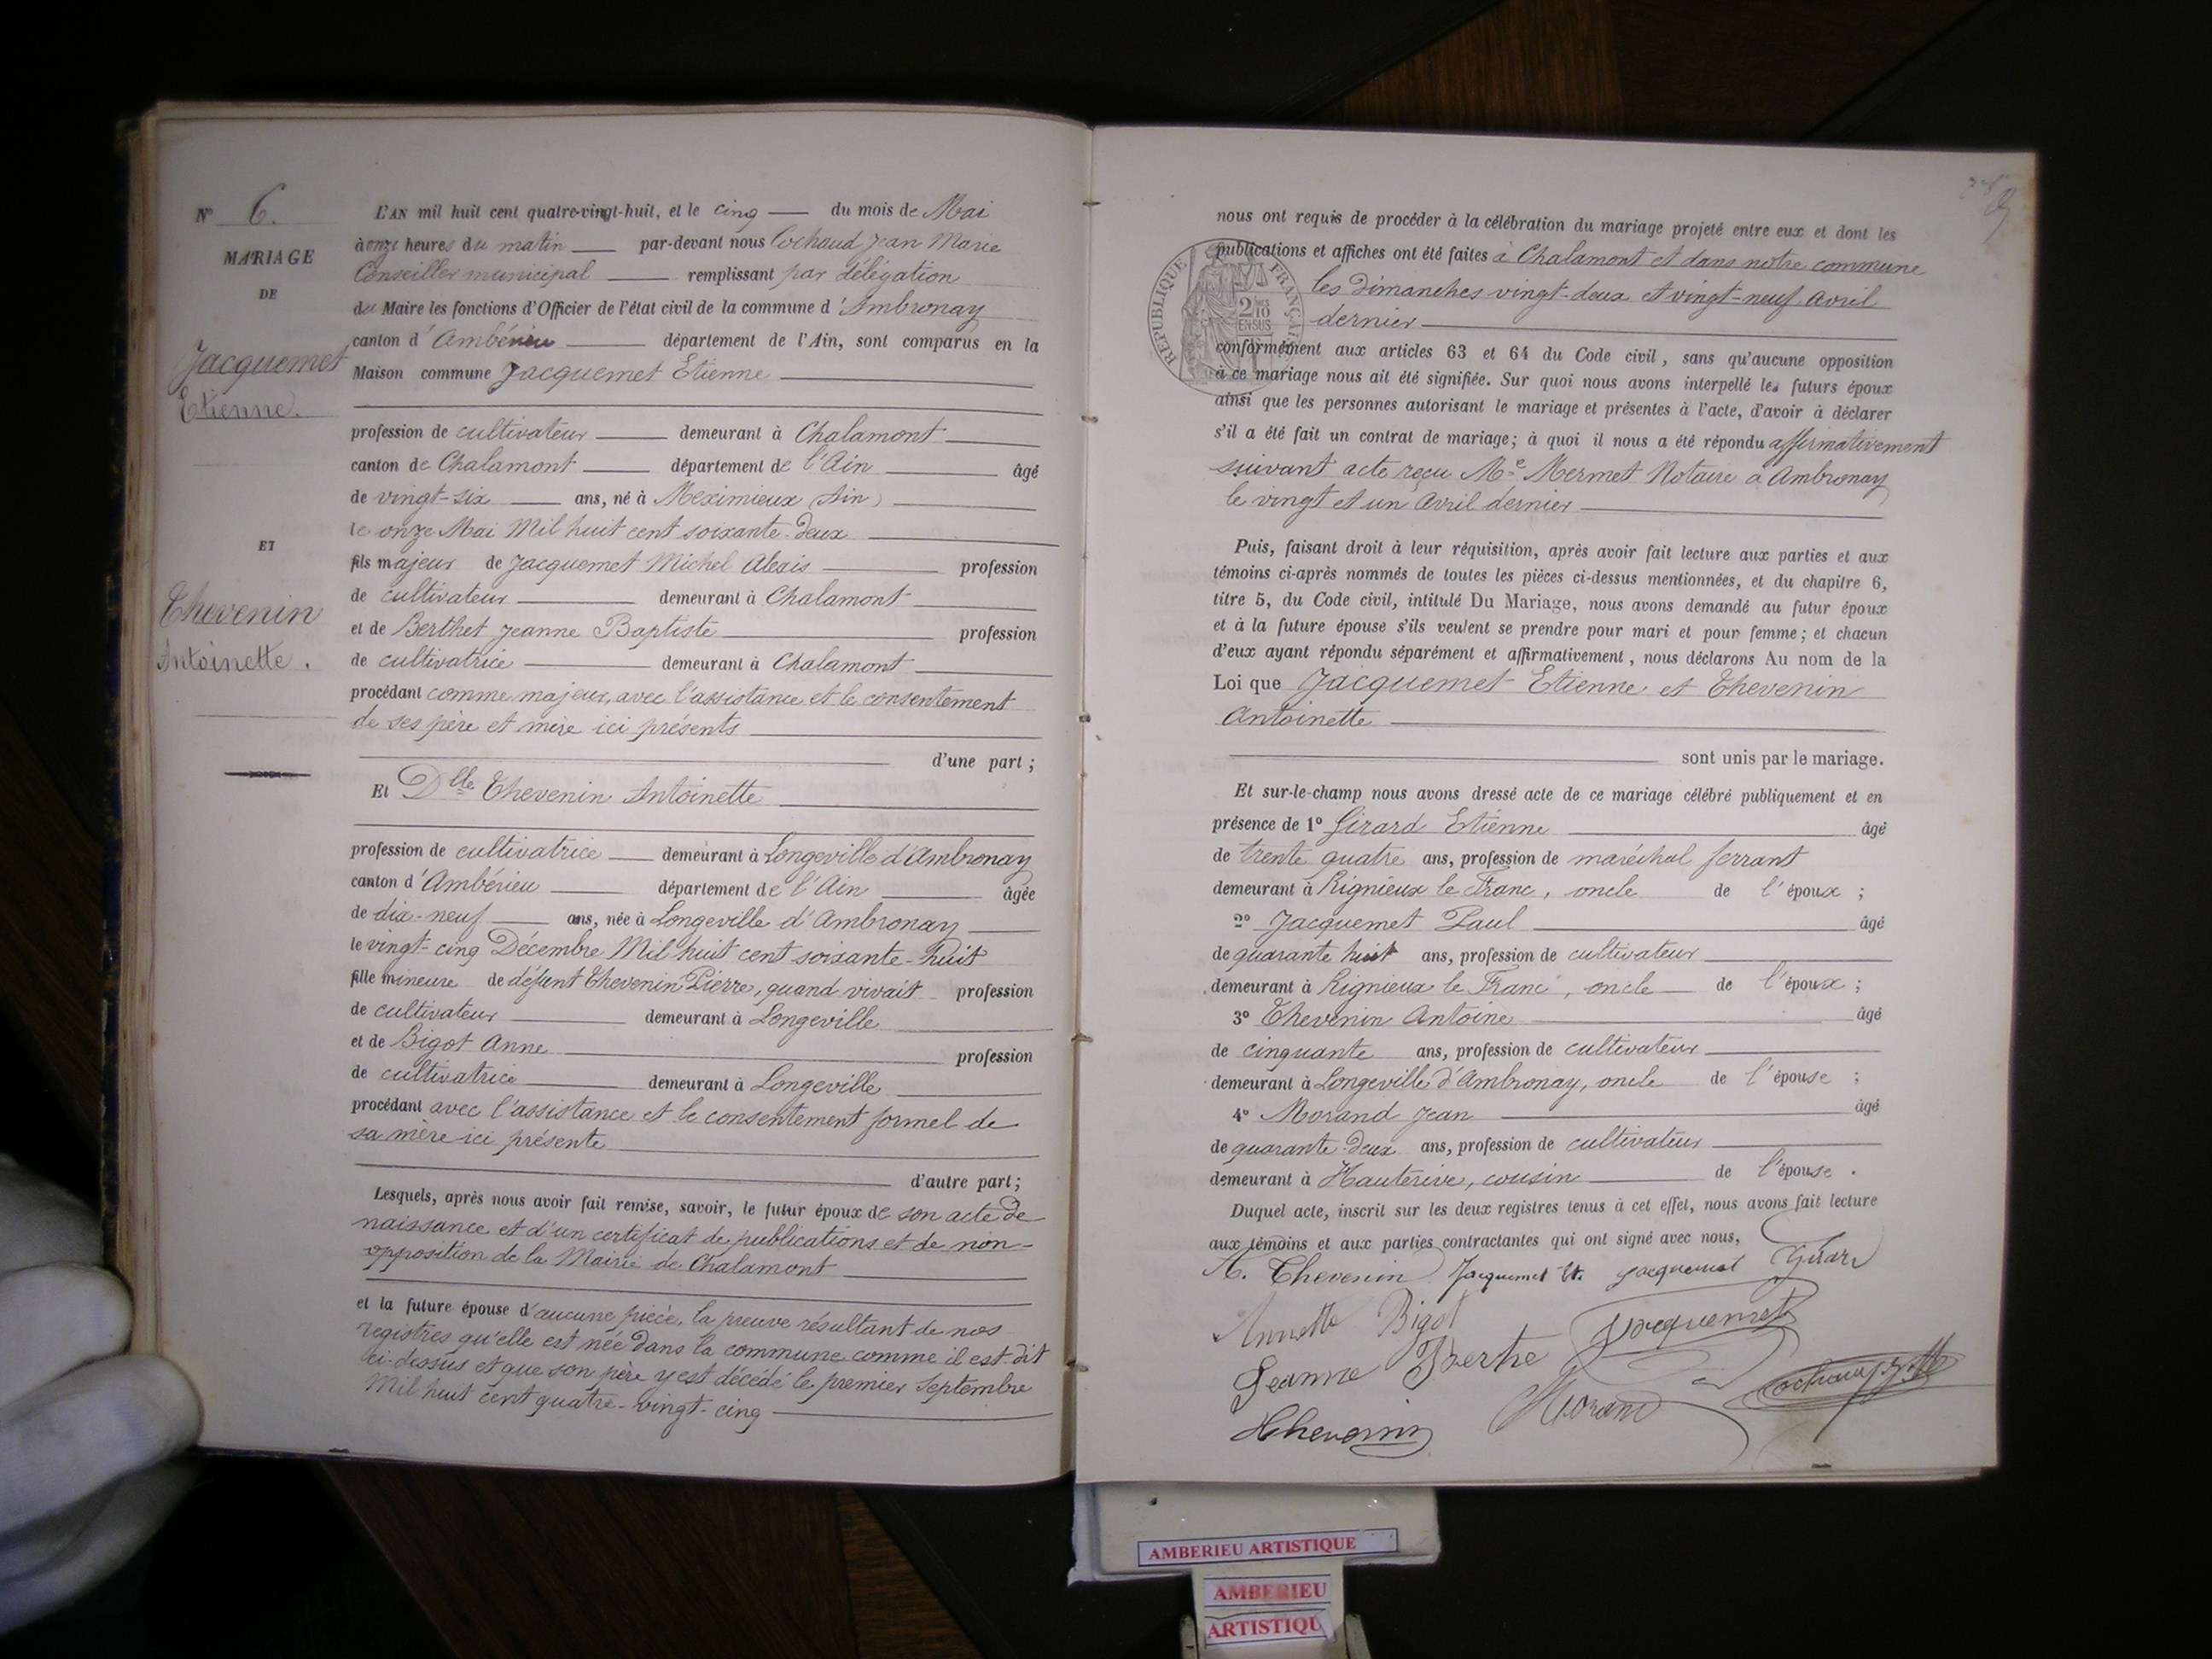 N° 6.
MARIAGE
DE
Jacquemet
Etienne.
ET
Thevenin
Antoinette.
L'AN mil huit cent quatre-vingt-huit, et le cinq du mois de Mai
à onze heures du matin par-devant nous Cochaud Jean Marie
Conseiller municipal remplissant par délégation
du Maire les fonctions d'Officier de l'état civil de la commune d'Ambronay
canton d'Ambérieu département de l'Ain, sont comparus en la
Maison commune Jacquemet Etienne
profession de cultivateur demeurant à Chalamont
canton de Chalamont département de l'Ain âgé
de vingt-six ans, né à Meximieux (Ain)
le onze Mai Mil huit cent soixante-deux
fils majeur de Jacquemet Michel Alexis profession
de cultivateur demeurant à Chalamont
et de Berthet Jeanne Baptiste profession
de cultivatrice demeurant à Chalamont
procédant comme majeur, avec l'assistance et le consentement
de ses père et mère ici présents
d'une part;
Et Dlle Thevenin Antoinette
profession de cultivatrice demeurant à Longeville d'Ambronay
canton d'Ambérieu département de l'Ain âgée
de dix-neuf ans, née à Longeville d'Ambronay
le vingt-cinq Décembre Mil huit cent soixante-huit
fille mineure de défunt Thevenin Pierre, quand vivait profession
de cultivateur demeurant à Longeville
et de Bigot Anne profession
de cultivatrice demeurant à Longeville
procédant avec l'assistance et le consentement formel de
sa mère ici présente
d'autre part;
Lesquels, après nous avoir fait remise, savoir, le futur époux de son acte de
naissance et d'un certificat de publications et de non-
opposition de la Mairie de Chalamont
et la future épouse d'aucune pièce, la preuve résultant de nos
registres qu'elle est née dans la commune comme il est dit
ci-dessus et que son père y est décédé le premier Septembre
Mil huit cent quatre-vingt-cinq
nous ont requis de procéder à la célébration du mariage projeté entre eux et dont les
publications et affiches ont été faites à Chalamont et dans notre commune
les Dimanches vingt-deux et vingt-neuf Avril
dernier
RÉPUBLIQUE FRANÇAISE
2/10 EN SUS
conformément aux articles 63 et 64 du Code civil, sans qu'aucune opposition
à ce mariage nous ait été signifiée. Sur quoi nous avons interpellé les futurs époux
ainsi que les personnes autorisant le mariage et présentes à l'acte, d'avoir à déclarer
s'il a été fait un contrat de mariage; à quoi il nous a été répondu affirmativement
suivant acte reçu Me Mermet Notaire à Ambronay
le vingt et un Avril dernier
Puis, faisant droit à leur réquisition, après avoir fait lecture aux parties et aux
témoins ci-après nommés de toutes les pièces ci-dessus mentionnées, et du chapitre 6,
titre 5, du Code civil, intitulé Du Mariage, nous avons demandé au futur époux
et à la future épouse s'ils veulent se prendre pour mari et pour femme; et chacun
d'eux ayant répondu séparément et affirmativement, nous déclarons Au nom de la
Loi que Jacquemet Etienne et Thevenin
Antoinette
sont unis par le mariage.
Et sur-le-champ nous avons dressé acte de ce mariage célébré publiquement et en
présence de 1° Girard Etienne âgé
de trente quatre ans, profession de maréchal ferrant
demeurant à Rignieux le Franc, oncle de l'époux;
2° Jacquemet Paul âgé
de quarante huit ans, profession de cultivateur
demeurant à Rignieux le Franc, oncle de l'époux;
3° Thevenin Antoine âgé
de cinquante ans, profession de cultivateur
demeurant à Longeville d'Ambronay, oncle de l'épouse;
4° Morand Jean âgé
de quarante-deux ans, profession de cultivateur
demeurant à Hauterive, cousin de l'épouse.
Duquel acte, inscrit sur les deux registres tenus à cet effet, nous avons fait lecture
aux témoins et aux parties contractantes qui ont signé avec nous,
A. Thevenin Jacquemet Et. Jacquemet Girard
Annette Bigot Jacquemet
Jeanne Berthe
Morand
Thevenin
AMBERIEU ARTISTIQUE
AMBERIEU
ARTISTIQU